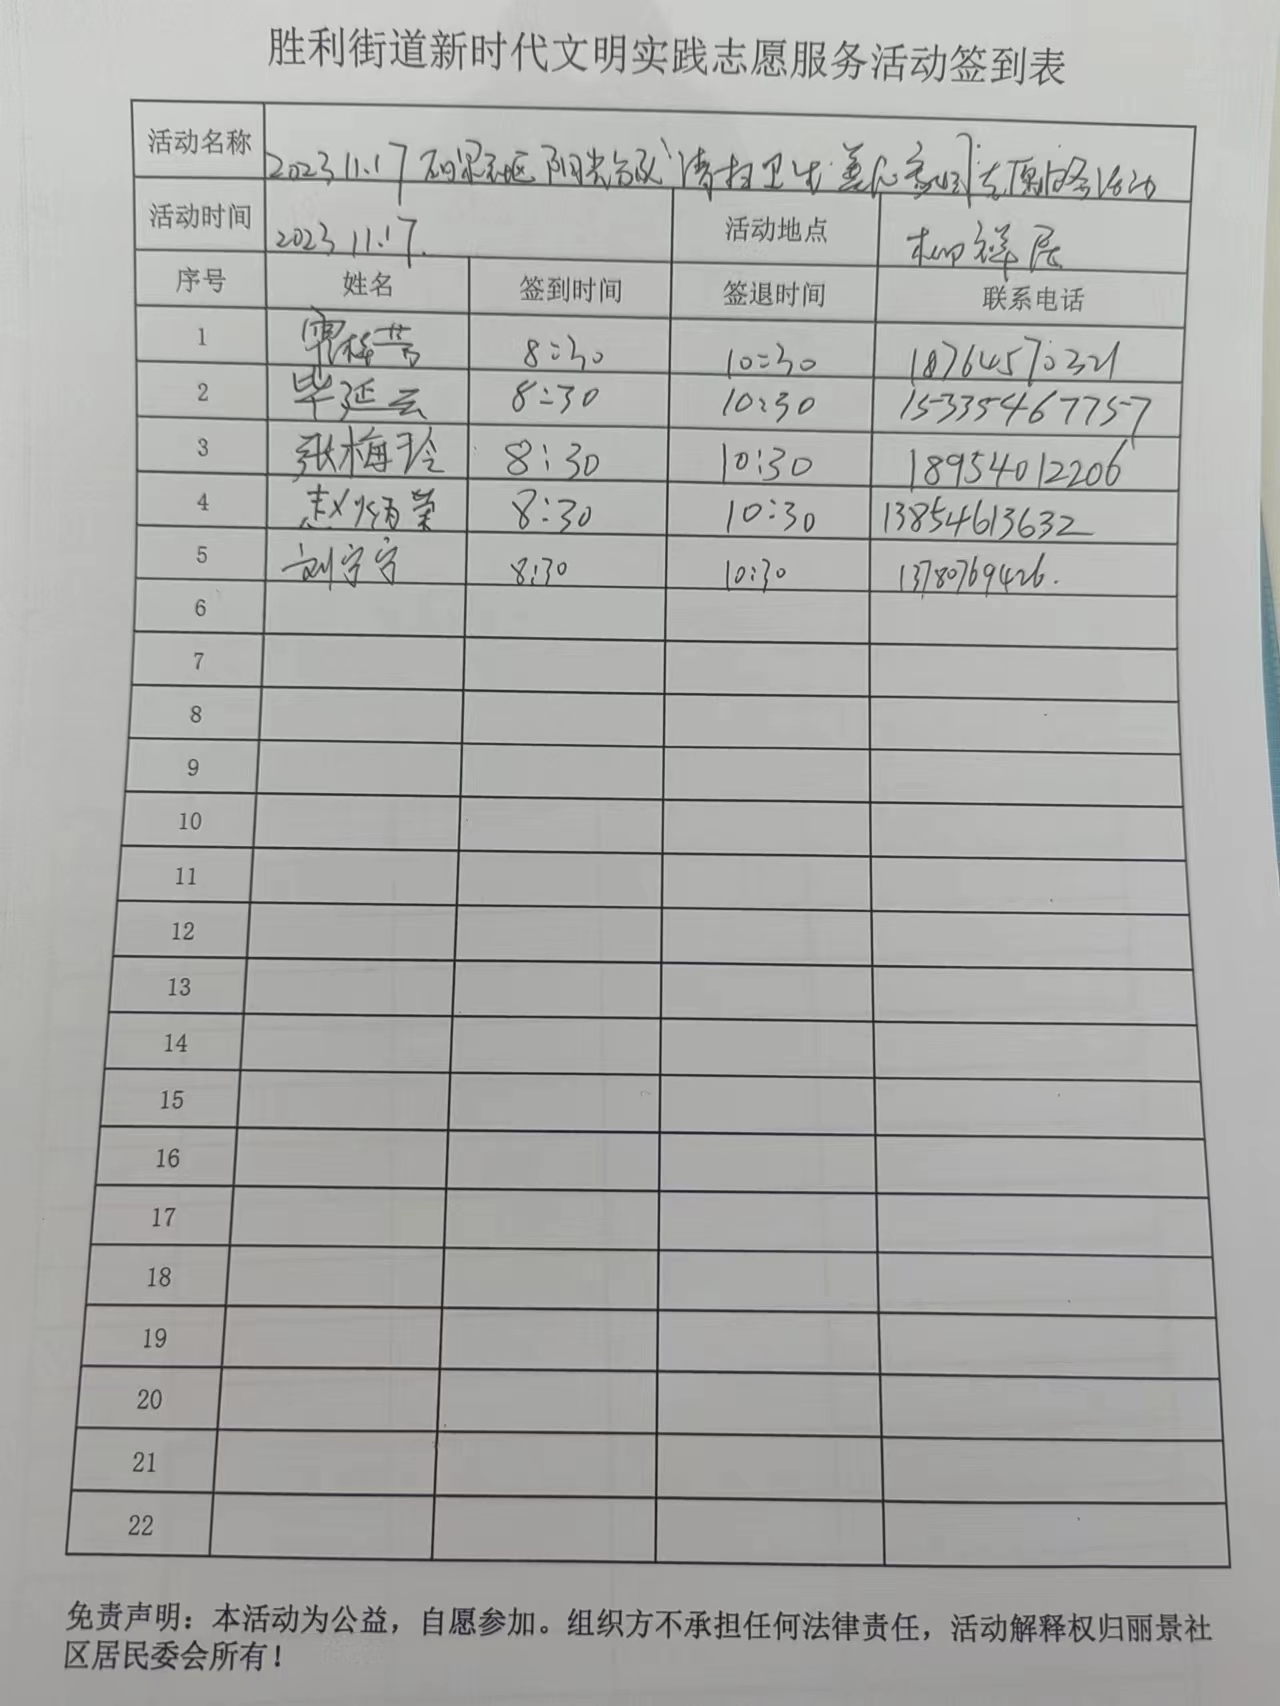 胜利街道新时代文明实践志愿服务活动签到表
活动名称 2023.11.17 社区 阳光 清扫卫生 美化家园 志愿服务活动
活动时间 2023.11.17. 活动地点 祥居
序号 姓名 签到时间 签退时间 联系电话
1 8:30 10:30 18764570321
2 毕延云 8:30 10:30 15335467757
3 张梅玲 8:30 10:30 18954012206
4 赵炳荣 8:30 10:30 13854613632
5 刘宁宁 8:30 10:30 13780769426.
6
7
8
9
10
11
12
13
14
15
16
17
18
19
20
21
22
免责声明：本活动为公益，自愿参加。组织方不承担任何法律责任，活动解释权归丽景社
区居民委会所有！